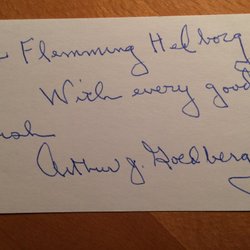 Flemming Helborg
With every good
Arthur J. Goldberg